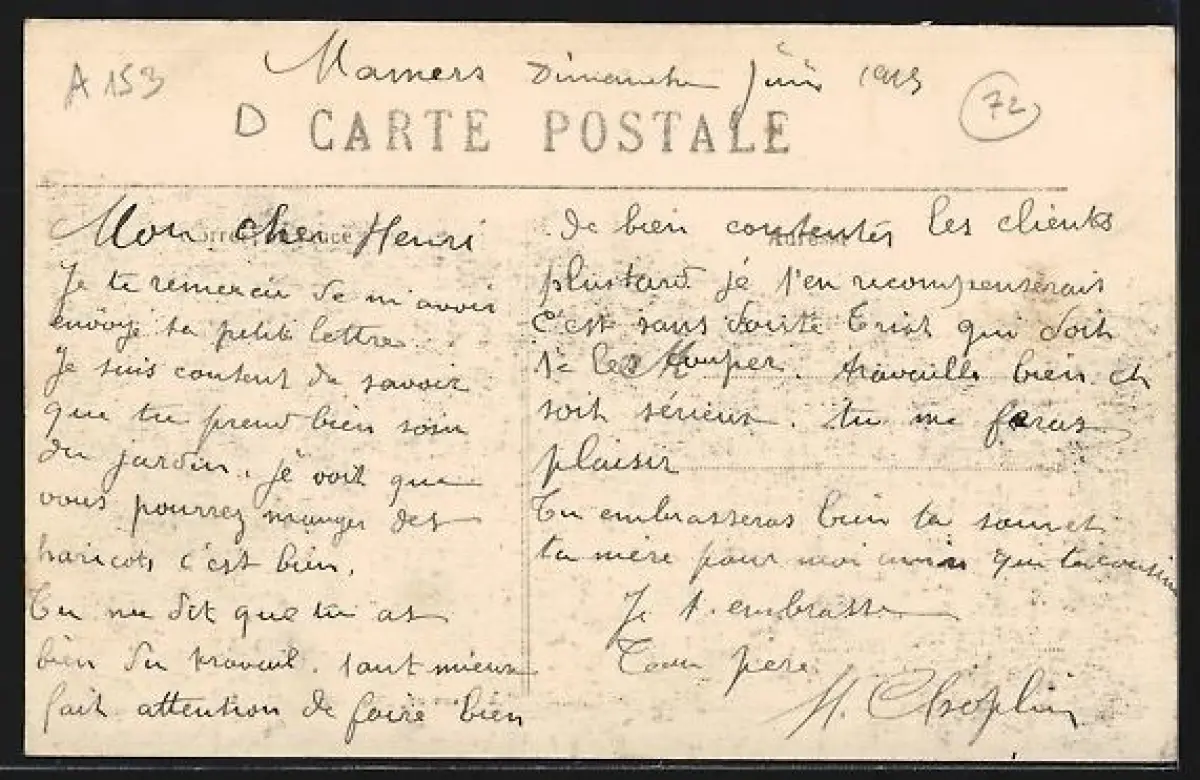 A 153
Mamers Dimanche Juin 1915
72
D CARTE POSTALE
Mon cher Henri
Je te remercie de m'avoir
envoyé ta petite lettre.
Je suis content de savoir
que tu prend bien soin
du jardin. je voit que
vous pourrez manger des
haricots c'est bien.
Tu me dit que tu as
bien du travail. tant mieux
fait attention de faire bien
de bien contentés les clients
plustard je t'en recompenserais
C'est sans doute qui doit
les. travaille bien et
soit sérieux. tu me feras
plaisir
Tu embrasseras bien ta sœur et
ta mère pour moi que ta cousine
Je t'embrasse
Ton père
H. Choplin